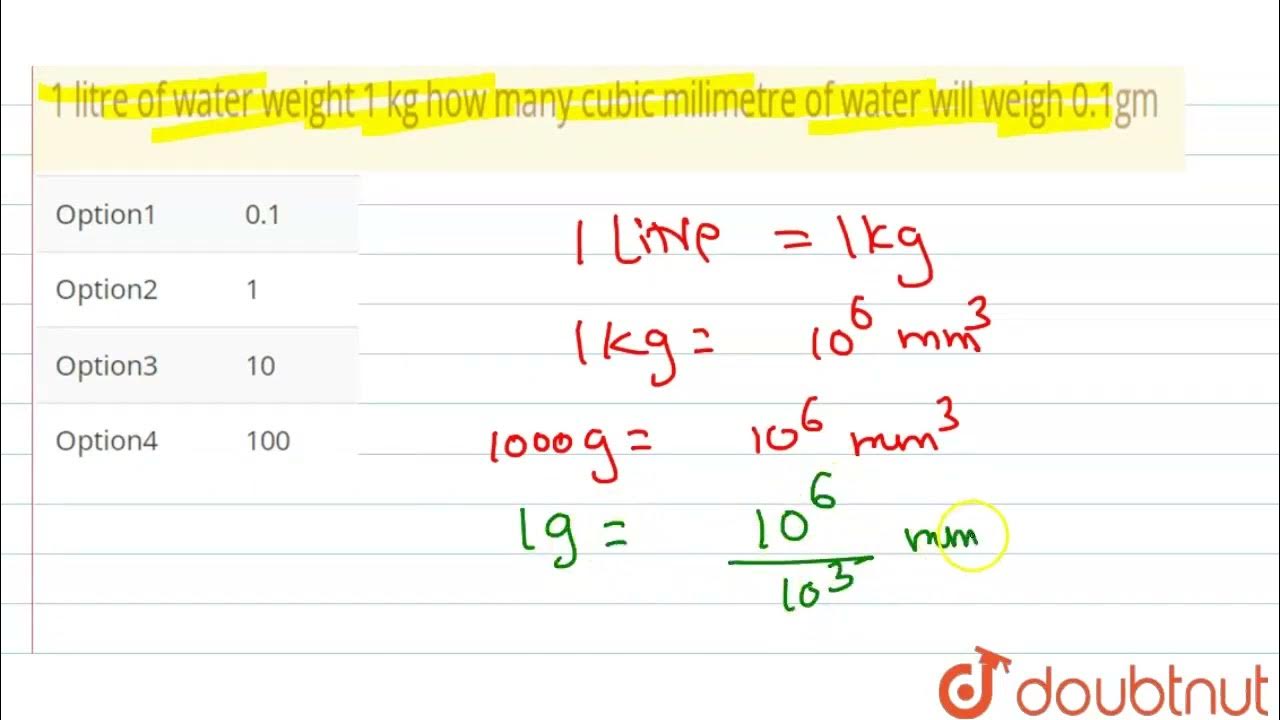 1 litre of water weight 1 kg how many cubic milimetre of water will weigh 0.1gm
Option1 0.1
Option2 1
Option3 10
Option4 100
1 Litre = 1kg
1kg = 10⁶ mm³
1000g = 10⁶ mm³
1g = 10⁶/10³ mm
doubtnut